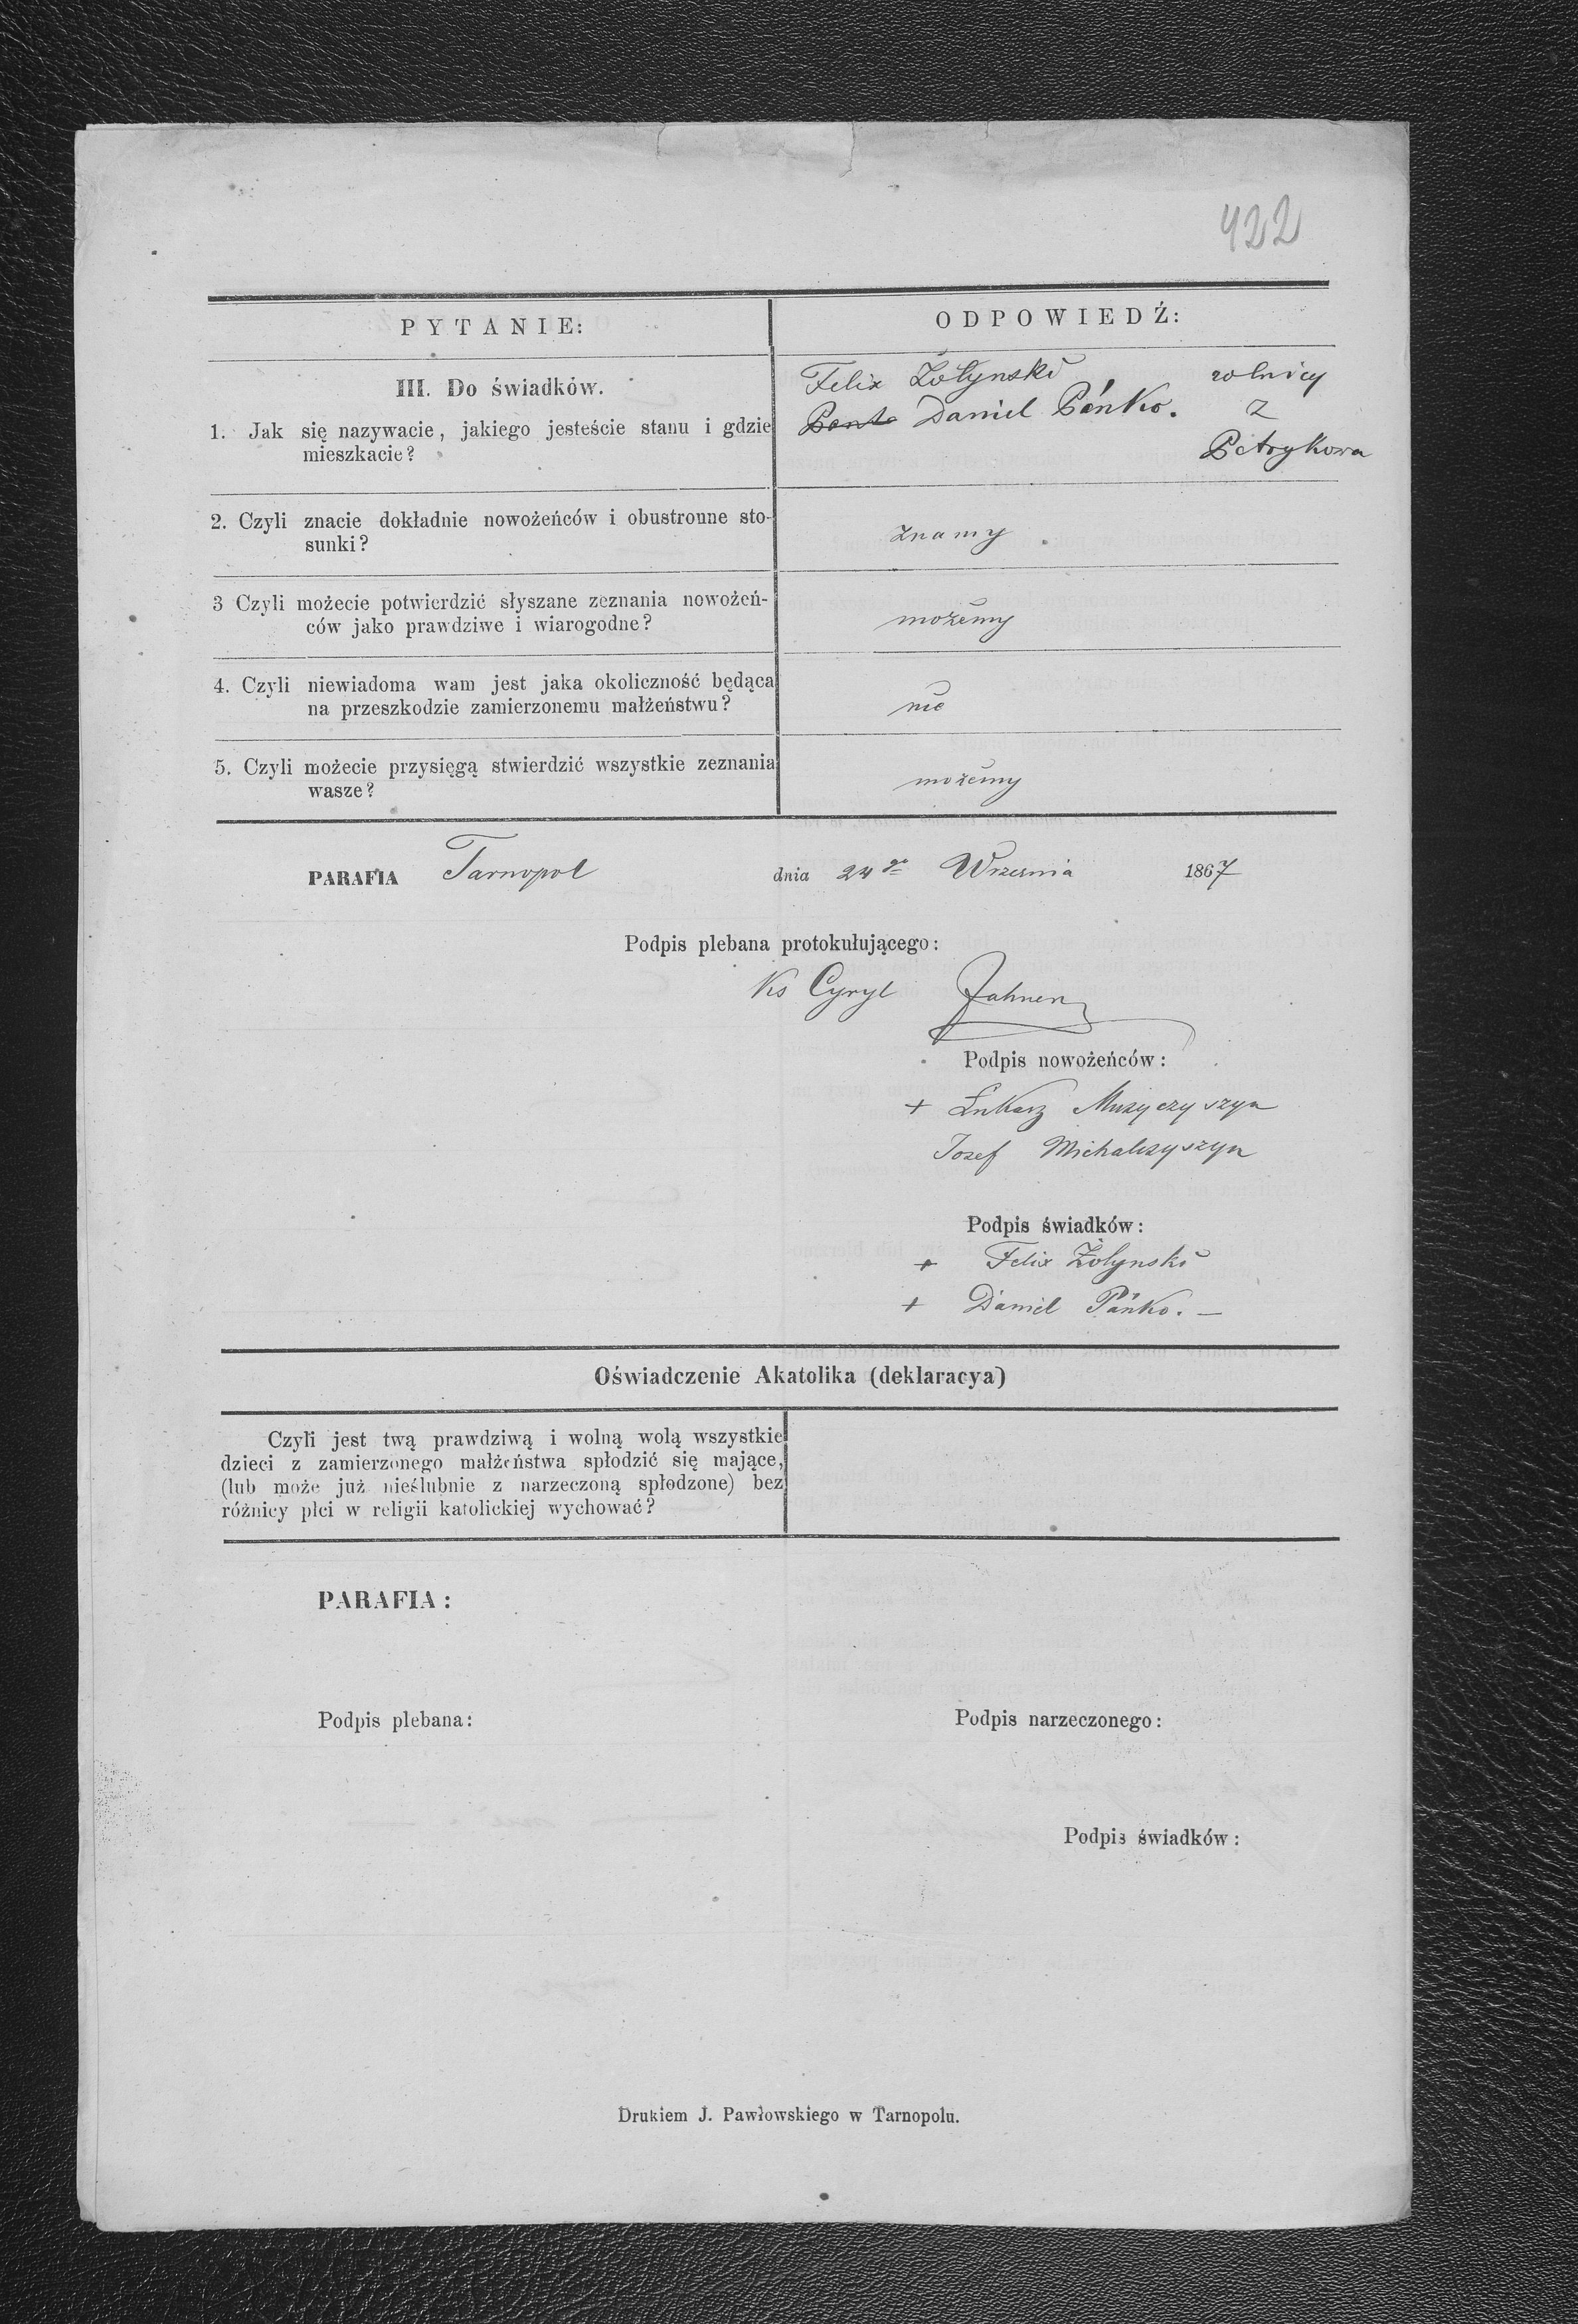 422
PYTANIE:
ODPOWIEDŹ:
III. Do świadków.
1. Jak się nazywacie, jakiego jesteście stanu i gdzie
mieszkacie?
Felix Żołynski rolnicy
Panko Daniel Pańko. z
Petrykowa
2. Czyli znacie dokładnie nowożeńców i obustronne sto-
sunki?
znamy
3 Czyli możecie potwierdzić słyszane zeznania nowożeń-
ców jako prawdziwe i wiarogodne?
możemy
4. Czyli niewiadoma wam jest jaka okoliczność będąca
na przeszkodzie zamierzonemu małżeństwu?
nie
5. Czyli możecie przysięgą stwierdzić wszystkie zeznania
wasze?
możemy
PARAFIA Tarnopol dnia 24go Wrzesnia 1867
Podpis plebana protokułującego:
Ks Cyryl Jahner
Podpis nowożeńców:
+ Łukasz Muzyczyszyn
Jozef Michalczyszyn
Podpis świadków:
+ Felix Żołynski
+ Daniel Pańko. —
Oświadczenie Akatolika (deklaracya)
Czyli jest twą prawdziwą i wolną wolą wszystkie
dzieci z zamierzonego małżeństwa spłodzić się mające,
(lub może już nieślubnie z narzeczoną spłodzone) bez
różnicy płci w religii katolickiej wychować?
PARAFIA:
Podpis plebana:
Podpis narzeczonego:
Podpis świadków:
Drukiem J. Pawłowskiego w Tarnopolu.